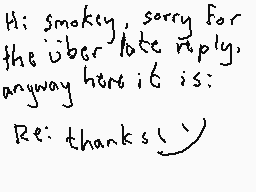 Hi smokey, sorry for
the über late reply,
anyway here it is:
Re: thanks